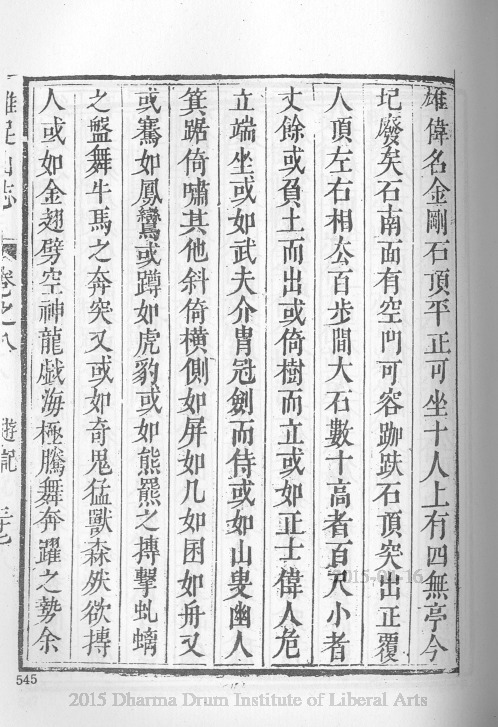 雄偉名金剛石頂平正可坐十人上有四無亭今
圮廢矣石南面有空門可容跏趺石頂突出正覆
人頂左右相去百步間大石數十高者百尺小者
丈餘或負土而出或倚樹而立或如正士偉人危
立端坐或如武夫介冑冠劍而侍或如山叟幽人
箕踞倚嘯其他斜倚橫側如屏如几如囷如舟又
或騫如鳳鸞或蹲如虎豹或如熊羆之摶擊虬螭
之盤舞牛馬之奔突又或如奇鬼猛獸森然欲摶
人或如金翅劈空神龍戯海極騰舞奔躍之勢余
山志 卷之八 遊記
545
2015-04-16
2015 Dharma Drum Institute of Liberal Arts